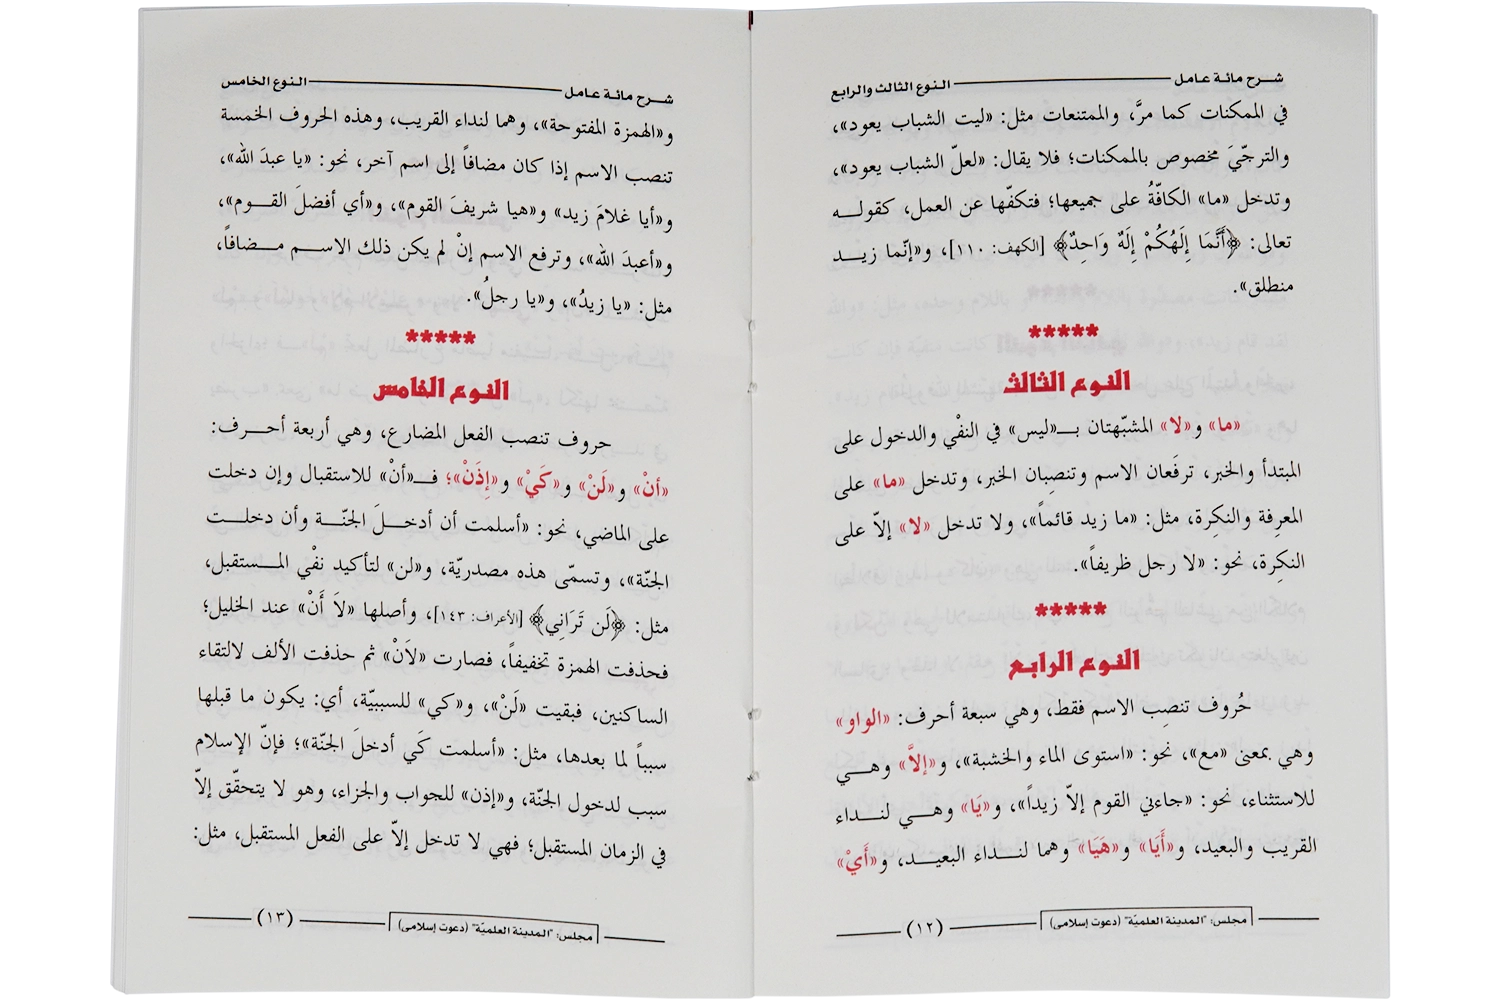 شرح مائة عامل النوع الثالث والرابع
في الممكنات كما مرَّ، والممتنعات مثل: «ليت الشباب يعود»،
والترجّيَ مخصوص بالممكنات؛ فلا يقال: «لعلّ الشباب يعود»،
وتدخل «ما» الكافّةُ على جميعها؛ فتكفّها عن العمل، كقولــه
تعالى: ﴿أَنَّمَا إِلَهُكُمْ إِلَهٌ وَاحِدٌ﴾ [الكهف: ١١٠]، و«إنّما زيــد
منطلق».
*****
النوع الثالث
«ما» و«لا» المشبّهتان بــ«ليس» في النفْي والدخول على
المبتدأ والخبر، ترفَعان الاسم وتنصِبان الخبر، وتدخل «ما» على
المعرِفة والنكِرة، مثل: «ما زيد قائماً»، ولا تدخل «لا» إلاّ على
النكِرة، نحو: «لا رجل ظريفاً».
*****
النوع الرابع
حُروف تنصِب الاسم فقط، وهي سبعة أحرف: «الواو»
وهي بمعنى «مع»، نحو: «استوى الماء والخشبة»، و«إلاَّ» وهــي
للاستثناء، نحو: «جاءني القوم إلاّ زيداً»، و«يَا» وهــي لنــداء
القريب والبعيد، و«أَيَا» و«هَيَا» وهما لنــداء البعيــد، و«أَيْ»
مجلس: "المدينة العلميّة" (دعوت إسلامى) (١٢)
شرح مائة عامل النوع الخامس
و«الهمزة المفتوحة»، وهما لنداء القريب، وهذه الحروف الخمسة
تنصب الاسم إذا كان مضافاً إلى اسم آخر، نحو: «يا عبدَ الله»،
و«أيا غلامَ زيد» و«هيا شريفَ القوم»، و«أي أفضلَ القــوم»،
و«أعبدَ الله»، وترفع الاسم إنْ لم يكن ذلك الاســم مــضافاً،
مثل: «يا زيدُ»، و«يا رجلُ».
*****
النوع الخامس
حروف تنصب الفعل المضارع، وهي أربعة أحــرف:
«أنْ» و«لَنْ» و«كَيْ» و«إِذَنْ»؛ فــ«أنْ» للاستقبال وإن دخلت
على الماضي، نحو: «أسلمت أن أدخــلَ الجنّــة وأن دخلــت
الجنّة»، وتسمّى هذه مصدريّة، و«لن» لتأكيد نفْي المــستقبل،
مثل: ﴿لَن تَرَانِي﴾ [الأعراف: ١٤٣]، وأصلها «لاَ أَنْ» عند الخليل؛
فحذفت الهمزة تخفيفاً، فصارت «لاَنْ» ثم حذفت الألف لالتقاء
الساكنين، فبقيت «لَنْ»، و«كي» للسببيّة، أي: يكون ما قبلها
سبباً لما بعدها، مثل: «أسلمت كَي أدخلَ الجنّة»؛ فإنّ الإسلام
سبب لدخول الجنّة، و«إذن» للجواب والجزاء، وهو لا يتحقّق إلاّ
في الزمان المستقبل؛ فهي لا تدخل إلاّ على الفعل المستقبل، مثل:
مجلس: "المدينة العلميّة" (دعوت إسلامى) (١٣)